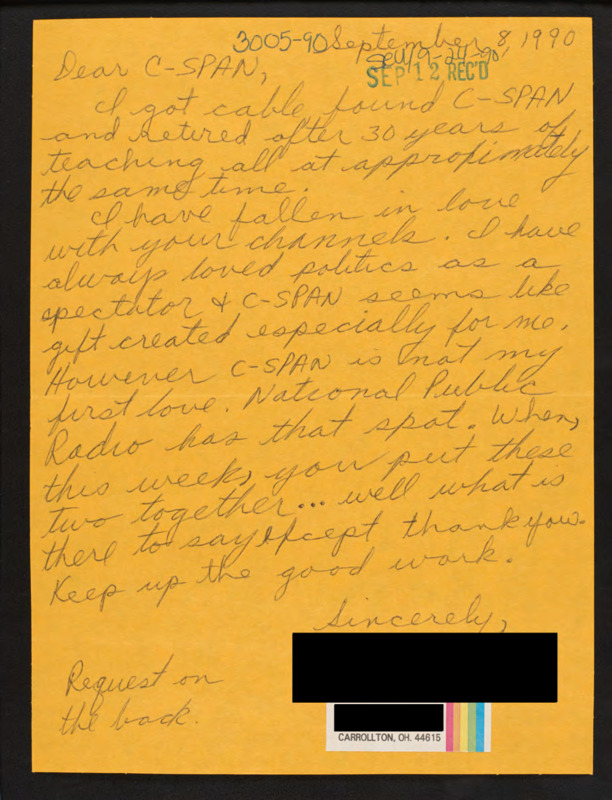 3005-90 September 8, 1990
SEP 12 REC'D
Dear C-SPAN,
I got cable found C-SPAN
and retired after 30 years of
teaching all at approximately
the same time.
I have fallen in love
with your channels. I have
always loved politics as a
spectator & C-SPAN seems like
gift created especially for me.
However C-SPAN is not my
first love. National Public
Radio has that spot. When,
this week, you put these
two together... well what is
there to say except thank you.
Keep up the good work.
Sincerely,
Request on
the back.
CARROLLTON, OH. 44615